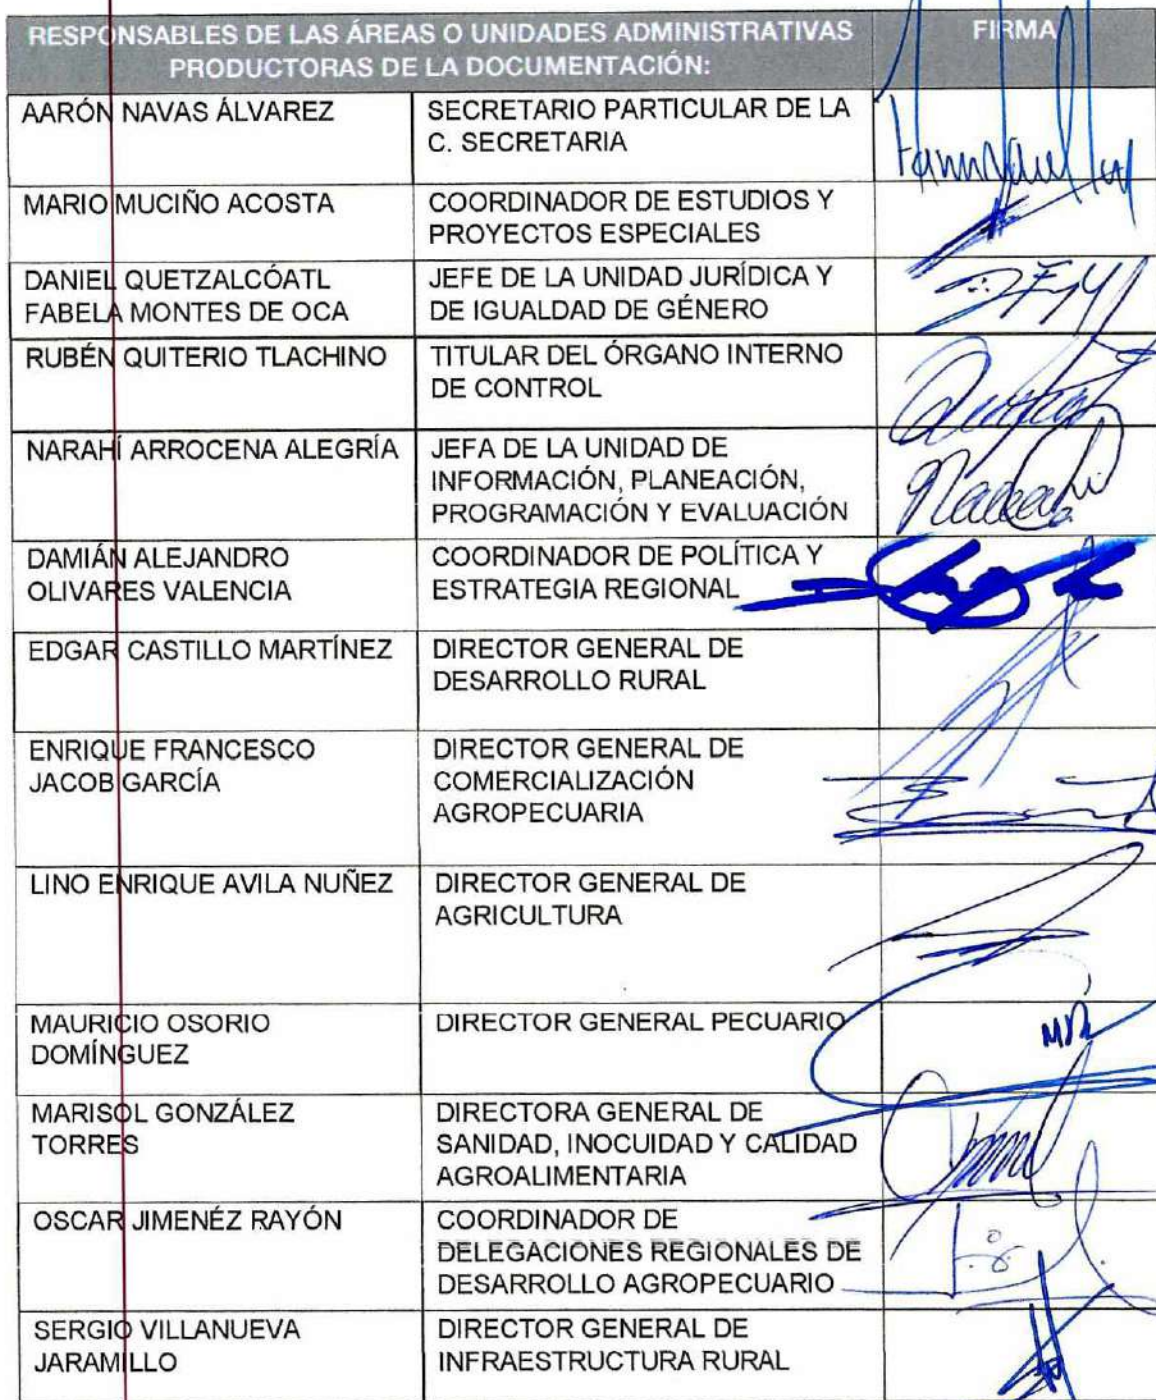 RESPONSABLES DE LAS ÁREAS O UNIDADES ADMINISTRATIVAS
PRODUCTORAS DE LA DOCUMENTACIÓN:
FIRMA
AARÓN NAVAS ÁLVAREZ
SECRETARIO PARTICULAR DE LA
C. SECRETARIA
MARIO MUCIÑO ACOSTA
COORDINADOR DE ESTUDIOS Y
PROYECTOS ESPECIALES
DANIEL QUETZALCÓATL
FABELA MONTES DE OCA
JEFE DE LA UNIDAD JURÍDICA Y
DE IGUALDAD DE GÉNERO
RUBÉN QUITERIO TLACHINO
TITULAR DEL ÓRGANO INTERNO
DE CONTROL
NARAHÍ ARROCENA ALEGRÍA
JEFA DE LA UNIDAD DE
INFORMACIÓN, PLANEACIÓN,
PROGRAMACIÓN Y EVALUACIÓN
DAMIÁN ALEJANDRO
OLIVARES VALENCIA
COORDINADOR DE POLÍTICA Y
ESTRATEGIA REGIONAL
EDGAR CASTILLO MARTÍNEZ
DIRECTOR GENERAL DE
DESARROLLO RURAL
ENRIQUE FRANCESCO
JACOB GARCÍA
DIRECTOR GENERAL DE
COMERCIALIZACIÓN
AGROPECUARIA
LINO ENRIQUE AVILA NUÑEZ
DIRECTOR GENERAL DE
AGRICULTURA
MAURICIO OSORIO
DOMÍNGUEZ
DIRECTOR GENERAL PECUARIO
MARISOL GONZÁLEZ
TORRES
DIRECTORA GENERAL DE
SANIDAD, INOCUIDAD Y CALIDAD
AGROALIMENTARIA
OSCAR JIMENÉZ RAYÓN
COORDINADOR DE
DELEGACIONES REGIONALES DE
DESARROLLO AGROPECUARIO
SERGIO VILLANUEVA
JARAMILLO
DIRECTOR GENERAL DE
INFRAESTRUCTURA RURAL